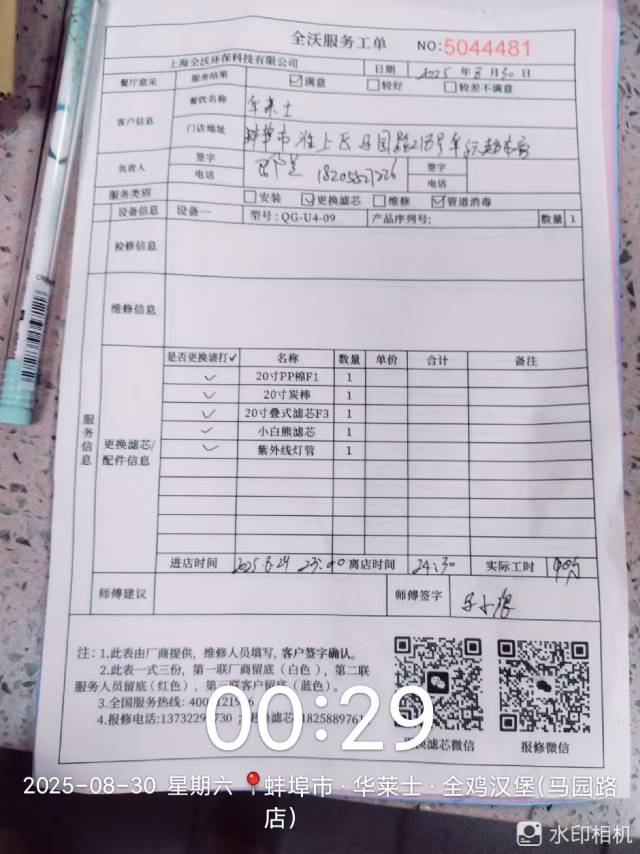 全沃服务工单 NO:5044481
上海全沃环保科技有限公司 日期 2025 年 8 月 30 日
餐厅意见 服务结果 ☑满意 □较好 □较差不满意
客户信息 餐饮名称 华莱士
门店地址 蚌埠市淮上区马园路213号
负责人 签字 签字
电话 18205527226 电话
服务类别 □安装 ☑更换滤芯 □维修 ☑管道消毒
设备信息 设备一 型号:QG-U4-09 产品序列号: 数量 1
检修信息
维修信息
服务信息
更换滤芯/配件信息
是否更换请打✓ 名称 数量 单价 合计 备注
✓ 20寸PP棉F1 1
✓ 20寸炭棒 1
✓ 20寸叠式滤芯F3 1
✓ 小白熊滤芯 1
✓ 紫外线灯管 1
进店时间 2025.8.29 23:00 离店时间 24:30 实际工时 90分
师傅建议 师傅签字
注:1.此表由厂商提供,维修人员填写,客户签字确认。
2.此表一式三份,第一联厂商留底(白色),第二联
服务人员留底(红色),第三联客户留底(蓝色)。
3.全国服务热线:400
4.报修电话:1373229 730;更换滤芯 1825889761
更换滤芯微信 报修微信
00:29
2025-08-30 星期六 📍蚌埠市·华莱士·全鸡汉堡(马园路
店)
水印相机